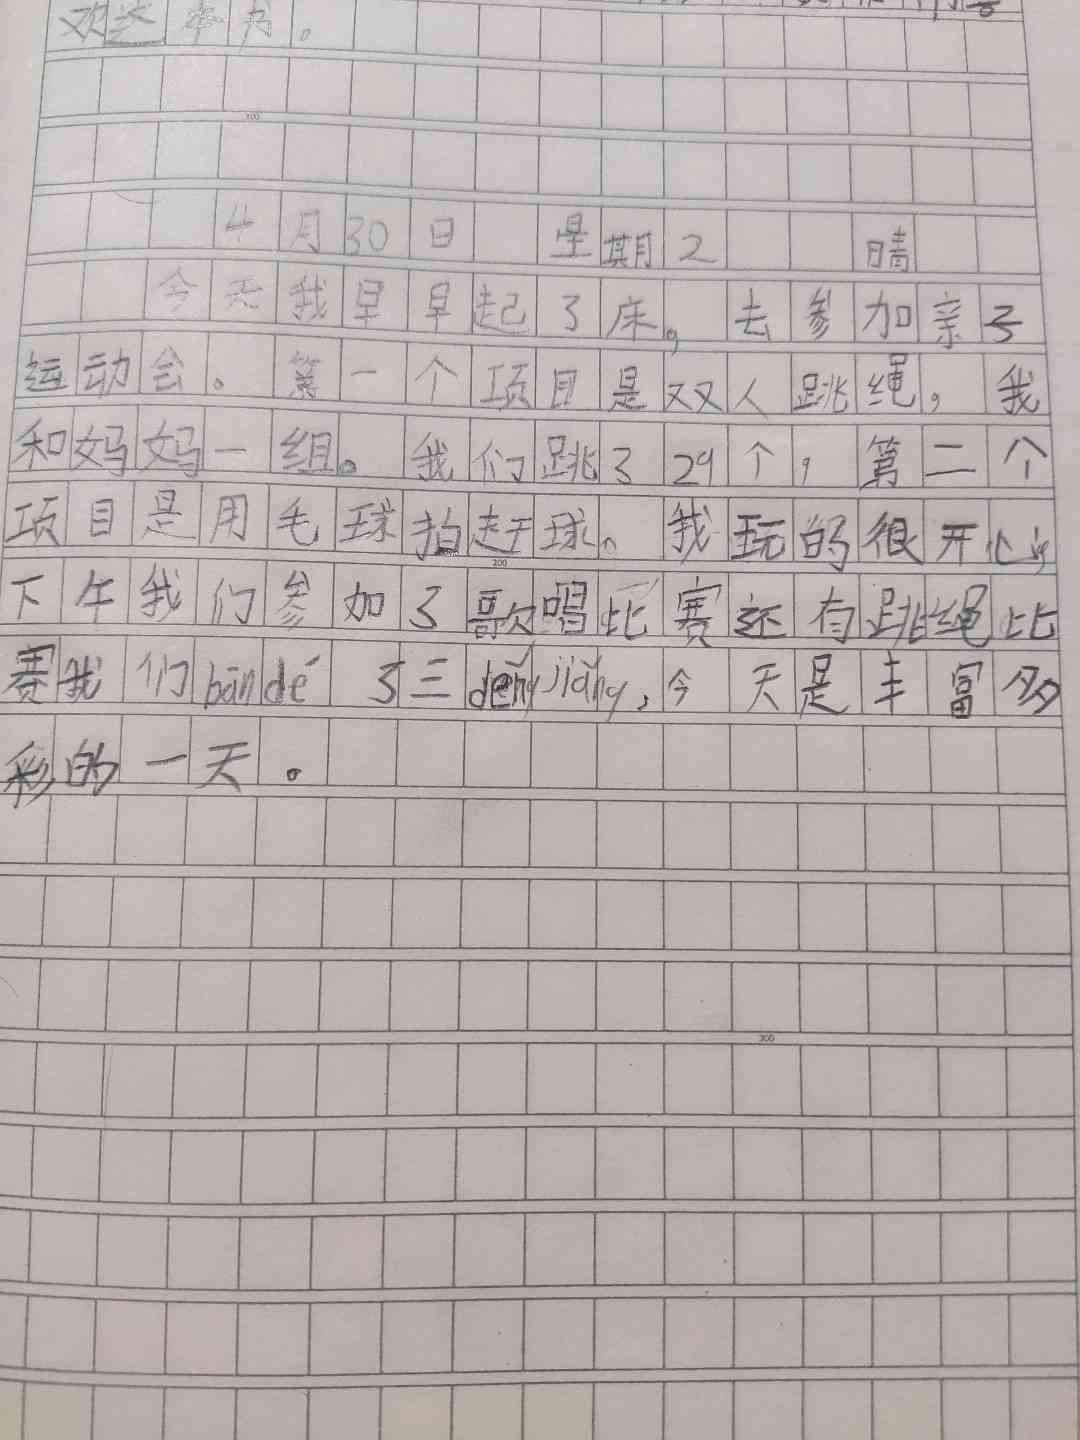 欢这本书。
100
4月30日 星期2 晴
今天我早早起了床，去参加亲子
运动会。第一个项目是双人跳绳，我
和妈妈一组。我们跳了29个，第二个
项目是用毛球拍赶球。我玩的很开心，
200
下午我们参加了歌唱比赛还有跳绳比
赛我们bān dé了三děng jiǎng，今天是丰富多
彩的一天。
300